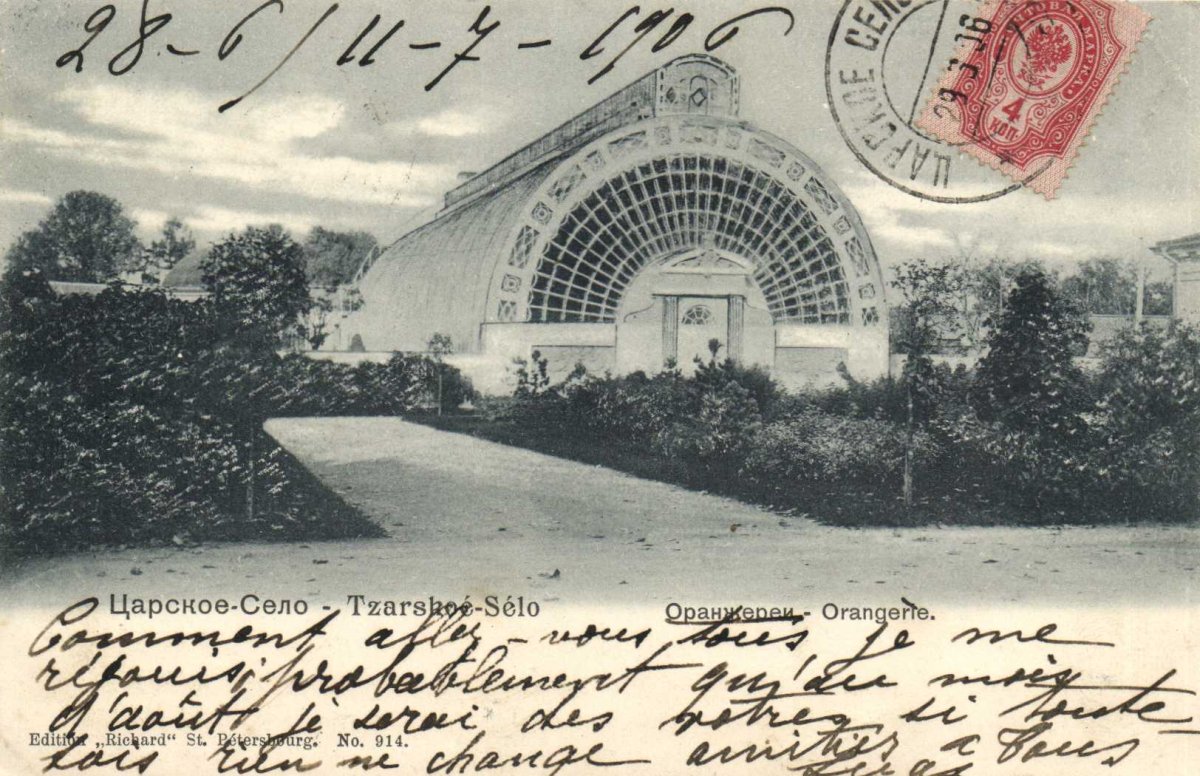 28-6/11-7-1906
ЦАРСКОЕ СЕЛО
29 3 06
ПОЧТОВАЯ МАРКА
4
КОП.
Царское-Село - Tzarskoé-Sélo
Оранжереи - Orangerie.
Comment allez-vous tous je me
réjouis, probablement qu'au mois
d'août je serai des vôtres si toute-
Edition „Richard“ St. Pétersbourg. No. 914.
fois rien ne change amitiés a tous